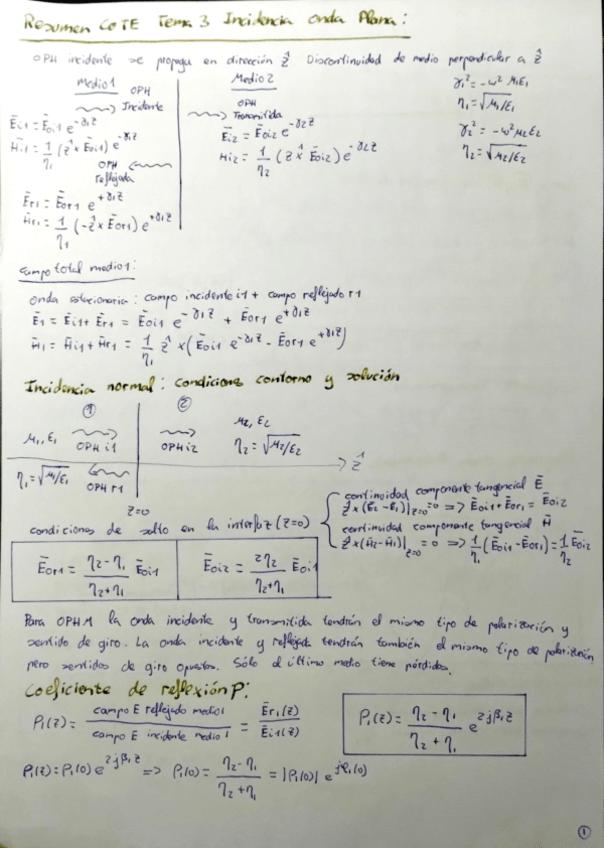 Resumen COTE Tema 3 Incidencia onda Plana:
OPH incidente se propaga en dirección ẑ Discontinuidad de medio perpendicular a ẑ
Medio 1
OPH
Incidente
Ēi1 = Ēoi1 e^-γ1z
H̄i1 = 1/η1 (ẑ x Ēoi1) e^-γ1z
OPH
reflejada
Ēr1 = Ēor1 e^+γ1z
H̄r1 = 1/η1 (-ẑ x Ēor1) e^+γ1z
Medio 2
OPH
Transmitida
Ēi2 = Ēoi2 e^-γ2z
Hi2 = 1/η2 (ẑ x Ēoi2) e^-γ2z
γ1² = -ω² μ1ε1
η1 = √μ1/ε1
γ2² = -ω² μ2ε2
η2 = √μ2/ε2
Campo total medio 1:
Onda estacionaria: campo incidente i1 + campo reflejado r1
Ē1 = Ēi1 + Ēr1 = Ēoi1 e^-γ1z + Ēor1 e^+γ1z
H̄1 = H̄i1 + H̄r1 = 1/η1 ẑ x (Ēoi1 e^-γ1z - Ēor1 e^+γ1z)
Incidencia normal: condiciones contorno y solución
① ②
μ1, ε1 OPH i1 OPH i2 μ2, ε2
η2 = √μ2/ε2
ẑ
η1 = √μ1/ε1 OPH r1
z=0
condiciones de salto en la interfaz (z=0)
continuidad componente tangencial Ē
ẑ x (Ē2 - Ē1)|z=0 = 0 => Ēoi1 + Ēor1 = Ēoi2
continuidad componente tangencial H̄
ẑ x (H̄2 - H̄1)|z=0 = 0 => 1/η1 (Ēoi1 - Ēor1) = 1/η2 Ēoi2
Ēor1 = η2 - η1 / η2 + η1 Ēoi1
Ēoi2 = 2η2 / η2 + η1 Ēoi1
Para OPHM la onda incidente y transmitida tendrán el mismo tipo de polarización y
sentido de giro. La onda incidente y reflejada tendrán también el mismo tipo de polarización
pero sentidos de giro opuestos. Sólo el último medio tiene pérdidas.
Coeficiente de reflexión ρ:
ρ1(z) = campo E reflejado medio 1 / campo E incidente medio 1 = Ēr1(z) / Ēi1(z)
ρ1(z) = η2 - η1 / η2 + η1 e^2jβ1z
ρ1(z) = ρ1(0) e^2jβ1z => ρ1(0) = η2 - η1 / η2 + η1 = |ρ1(0)| e^jφ1(0)
①